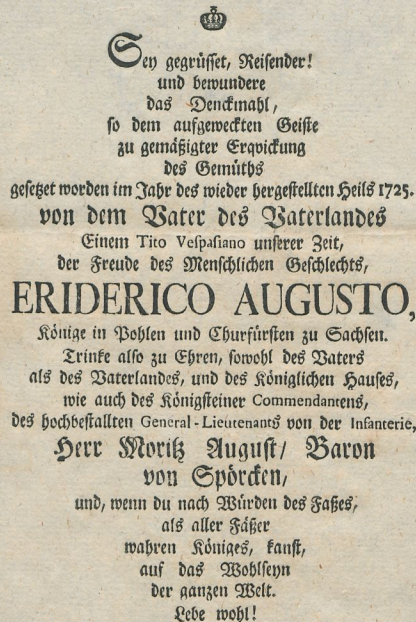 Sey gegrüsset, Reisender!
und bewundere
das Denckmahl,
so dem aufgeweckten Geiste
zu gemäßigter Erqvickung
des Gemüths
gesetzet worden im Jahr des wieder hergestellten Heils 1725.
von dem Vater des Vaterlandes
Einem Tito Vespasiano unserer Zeit,
der Freude des Menschlichen Geschlechts,
ERIDERICO AUGUSTO,
Könige in Pohlen und Churfürsten zu Sachsen.
Trinke also zu Ehren, sowohl des Vaters
als des Vaterlandes, und des Königlichen Hauses,
wie auch des Königsteiner Commendantens,
des hochbestallten General-Lieutenants von der Infanterie,
Herr Moritz August/ Baron
von Spörcken,
und, wenn du nach Würden des Faßes,
als aller Fäßer
wahren Königes, kanst,
auf das Wohlseyn
der ganzen Welt.
Lebe wohl!